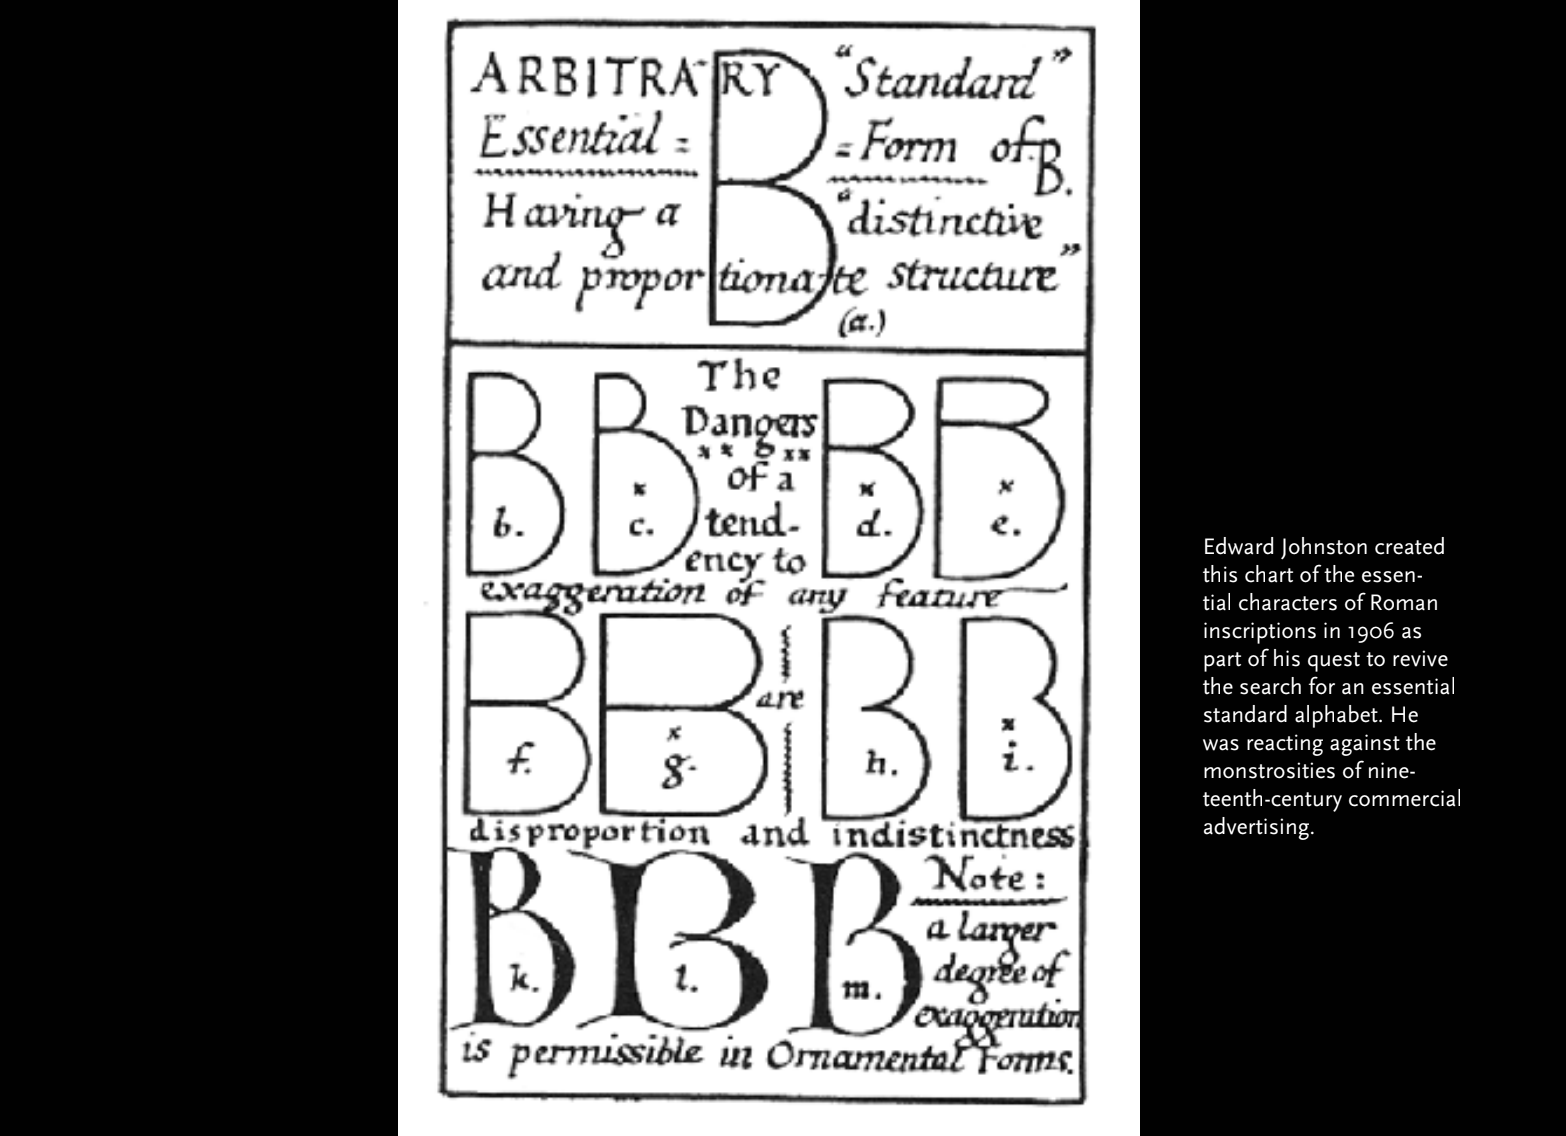 ARBITRARY "Standard"
Essential = = Form of B.
Having a B "distinctive
and proportionate structure"
(a.)
The
Dangers
of a
tend-
b. x c. x d. x e.
ency to
exaggeration of any feature
are
f. x g. h. x i.
disproportion and indistinctness
Note:
a larger
degree of
k. l. m.
exaggeration
is permissible in Ornamental Forms.
Edward Johnston created
this chart of the essen-
tial characters of Roman
inscriptions in 1906 as
part of his quest to revive
the search for an essential
standard alphabet. He
was reacting against the
monstrosities of nine-
teenth-century commercial
advertising.